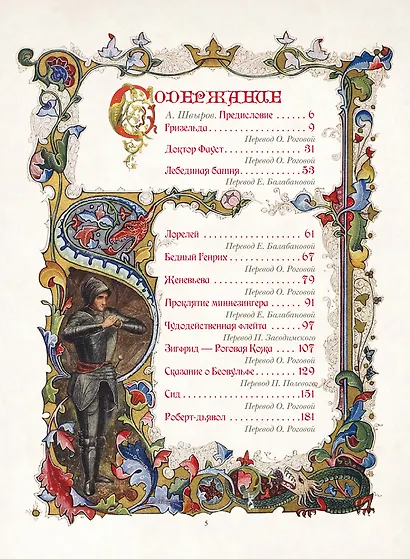 Содержание
А. Швыров. Предисловие ...... 6
Гризельда ................ 9
Перевод О. Роговой
Доктор Фауст .............. 31
Перевод О. Роговой
Лебединая башня ........... 53
Перевод Е. Балабановой
Лорелей .................. 61
Перевод Е. Балабановой
Бедный Генрих ............ 67
Перевод О. Роговой
Женевьева ............... 79
Перевод О. Роговой
Проклятие миннезингера .... 91
Перевод Е. Балабановой
Чудодейственная флейта .... 97
Перевод П. Засодимского
Зигфрид — Роговая Кожа .... 107
Перевод О. Роговой
Сказание о Беовульфе ....... 129
Перевод П. Полевого
Сид ..................... 151
Перевод О. Роговой
Роберт-дьявол ............. 181
Перевод О. Роговой
5